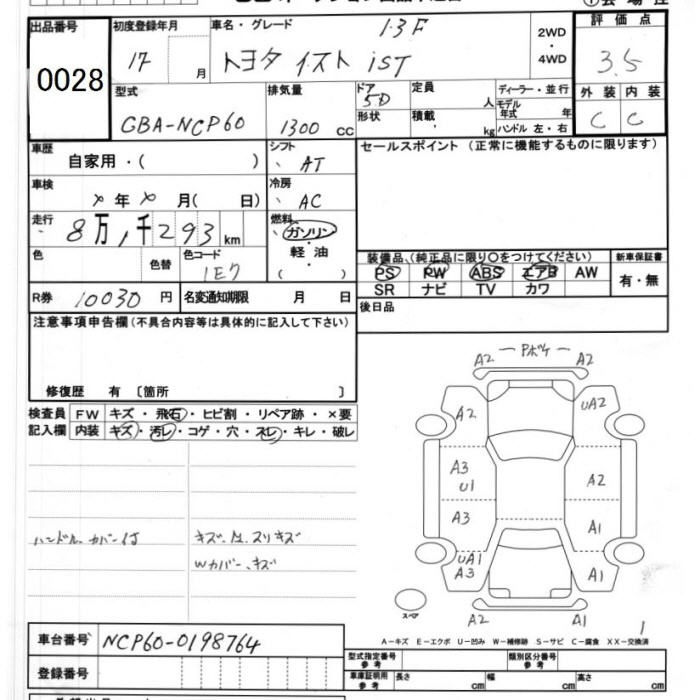 出品番号 初度登録年月 車名・グレード 1.3F 2WD・4WD 評価点
0028 17 月 トヨタ イスト iST 3.5
型式 GBA-NCP60 排気量 1300 CC
ドア 5D 定員 人 ディーラー・並行 外装 内装
形状 積載 kg モデル年式 年 C C
ハンドル 左・右
車歴 自家用・( ) シフト AT セールスポイント (正常に機能するものに限ります)
車検 年 月( 日) 冷房 AC
走行 8万1千293km 燃料 ガソリン
軽油
( )
色 色替 色コード 1E7
装備品(純正品に限り〇をつけてください) 新車保証書
PS PW ABS エアB AW 有・無
SR ナビ TV カワ
R券 10030円 名変通知期限 月 日 後日品
注意事項申告欄(不具合内容等は具体的に記入して下さい)
修復歴 有 〔箇所 〕
検査員 FW キズ・飛石・ヒビ割・リペア跡・×要
記入欄 内装 キズ・汚レ・コゲ・穴・スレ・キレ・破レ
ハンドルカバー付
Wカバー、キズ
A2 Pボケ A2
A2 UA2
A3 U1 A2
A3 A1
UA1 A3 A1
スペア A2 A1
1
A-キズ E-エクボ U-凹み W-補修跡 S-サビ C-腐食 XX-交換済
車台番号 NCP60-0198764
型式指定番号 参考 類別区分番号 参考
登録番号
車庫証明用 参考 長さ cm 幅 cm 高さ cm